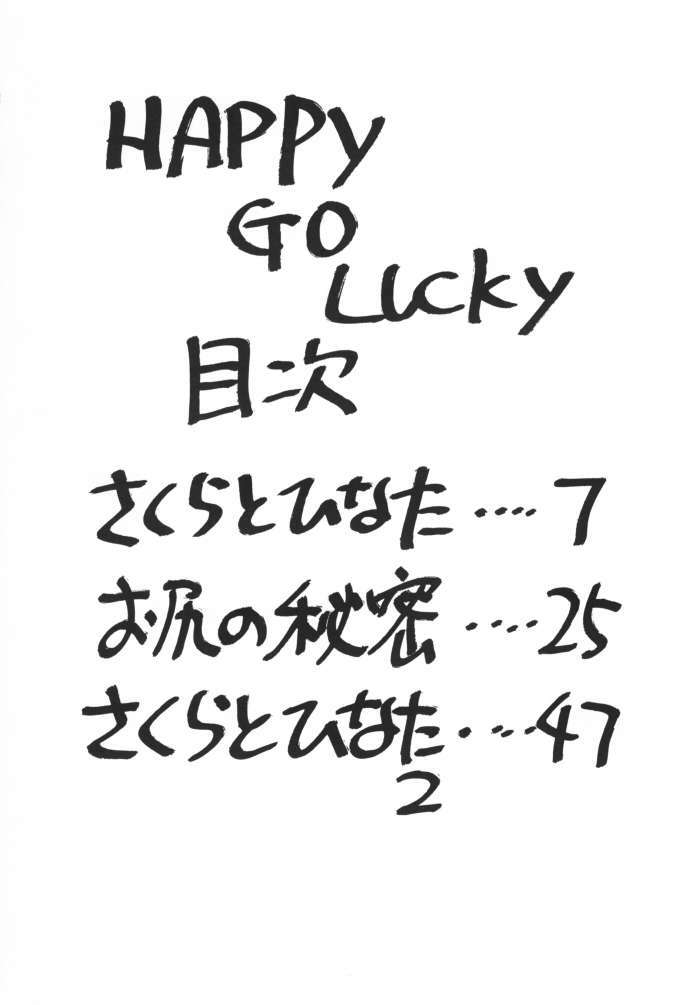 HAPPY
GO
LUCKY
目次
さくらとひなた････7
お尻の秘密････25
さくらとひなた････47
2